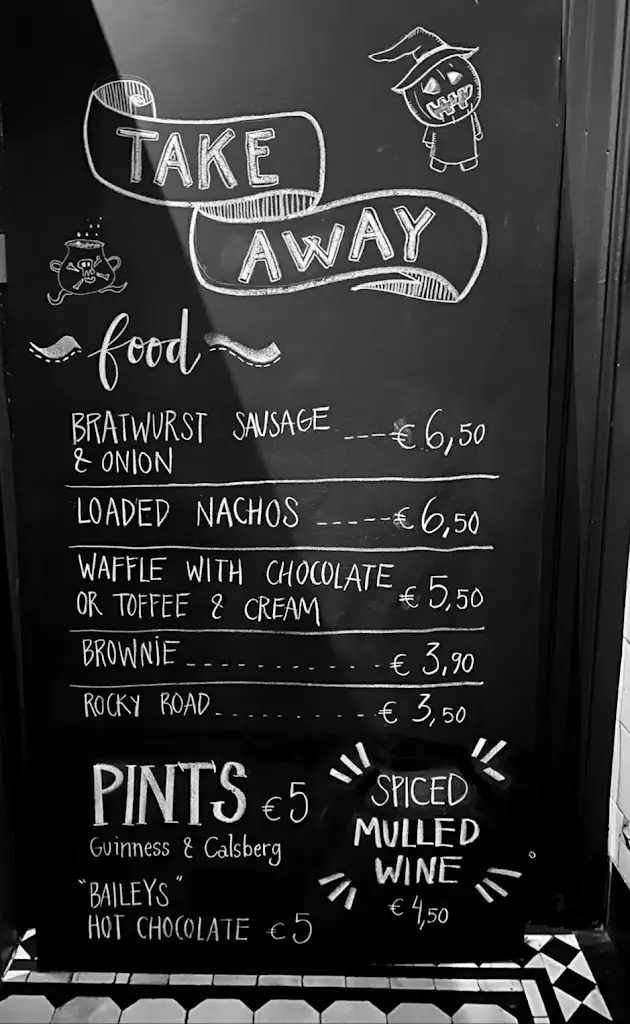 TAKE
AWAY
food
BRATWURST SAUSAGE ---- € 6,50
& ONION
LOADED NACHOS ----- € 6,50
WAFFLE WITH CHOCOLATE
OR TOFFEE & CREAM € 5,50
BROWNIE ------------ € 3,90
ROCKY ROAD ---------- € 3,50
PINTS € 5
Guinness & Calsberg
"BAILEYS"
HOT CHOCOLATE € 5
SPICED
MULLED
WINE
€ 4,50